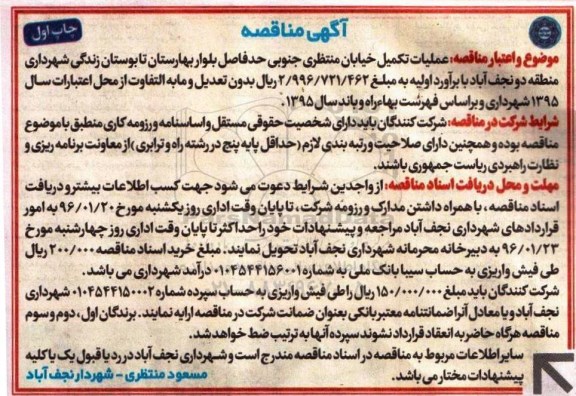 آگهی مناقصه
چاپ اول
موضوع و اعتبار مناقصه: عملیات تکمیل خیابان منتظری جنوبی حدفاصل بلوار بهارستان تا بوستان زندگی شهرداری
منطقه دو نجف آباد با برآورد اولیه به مبلغ ۲/۹۹۶/۷۲۱/۴۶۲ ریال بدون تعدیل و مابه التفاوت از محل اعتبارات سال
۱۳۹۵ شهرداری و براساس فهرست بهاء راه و باند سال ۱۳۹۵.
شرایط شرکت در مناقصه: شرکت کنندگان باید دارای شخصیت حقوقی مستقل و اساسنامه و رزومه کاری منطبق با موضوع
مناقصه بوده و همچنین دارای صلاحیت و رتبه بندی لازم (حداقل پایه پنج در رشته راه و ترابری) از معاونت برنامه ریزی و
نظارت راهبردی ریاست جمهوری باشند.
مهلت و محل دریافت اسناد مناقصه: از واجدین شرایط دعوت می شود جهت کسب اطلاعات بیشتر و دریافت
اسناد مناقصه، با همراه داشتن مدارک و رزومه شرکت، تا پایان وقت اداری روز یکشنبه مورخ ۹۶/۰۱/۲۰ به امور
قراردادهای شهرداری نجف آباد مراجعه و پیشنهادات خود را حداکثر تا پایان وقت اداری روز چهارشنبه مورخ
۹۶/۰۱/۲۳ به دبیرخانه محرمانه شهرداری نجف آباد تحویل نمایند. مبلغ خرید اسناد مناقصه ۲۰۰/۰۰۰ ریال
طی فیش واریزی به حساب سیبا بانک ملی به شماره ۰۱۰۴۵۴۴۱۵۶۰۰۱ درآمد شهرداری می باشد.
شرکت کنندگان باید مبلغ ۱۵۰/۰۰۰/۰۰۰ ریال را طی فیش واریزی به حساب سپرده شماره ۰۱۰۴۵۴۴۱۵۰۰۰۲ شهرداری
نجف آباد و یا معادل آنرا ضمانتنامه معتبر بانکی بعنوان ضمانت شرکت در مناقصه ارایه نمایند. برندگان اول، دوم و سوم
مناقصه هرگاه حاضر به انعقاد قرارداد نشوند سپرده آنها به ترتیب ضبط خواهد شد.
سایر اطلاعات مربوط به مناقصه در اسناد مناقصه مندرج است و شهرداری نجف آباد در رد یا قبول یک یا کلیه
پیشنهادات مختار می باشد.
مسعود منتظری - شهردار نجف آباد